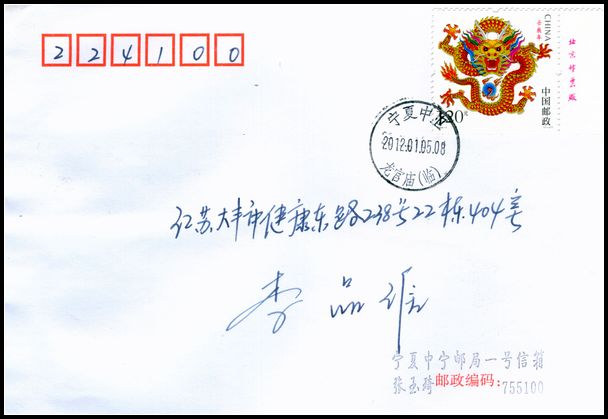 224100
CHINA
壬辰年
中国邮政
120分
北京邮票厂
宁夏中宁
2012.01.05.08
龙宫庙(临)
江苏大丰市健康东路238号22栋404室
李品
宁夏中宁邮局一号信箱
张玉琦 邮政编码: 755100